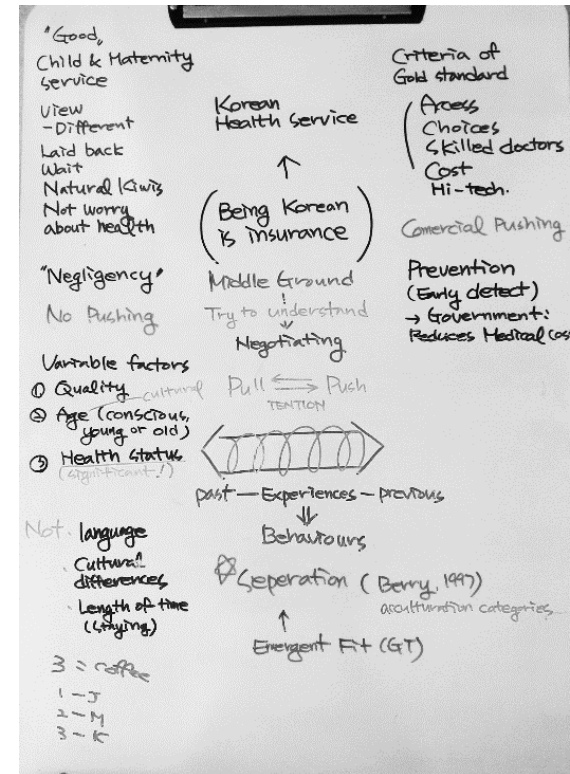 "Good"
Child & Maternity
service
View
- Different
Laid back
Wait
Natural Kiwis
Not worry
about health
"Negligency"
No Pushing
Variable factors
① Quality
② Age (conscious,
young or old)
cultural
③ Health status
(significant!)
Not · language
· Cultural
differences
· Length of time
(staying)
3 = coffee
1 - J
2 - M
3 - K
Korean
Health service
↑
(Being Korean
is insurance)
Middle Ground
Try to understand
Negotiating
Pull ⇌ Push
TENTION
past - Experiences - previous
⇓
Behaviours
☆ Seperation (Berry, 1997)
acculturation categories
↑
Emergent Fit (GT)
Criteria of
Gold standard
Access
Choices
Skilled doctors
Cost
Hi-tech.
Comercial Pushing
Prevention
(Early detect)
→ Government:
Reduces Medical cos